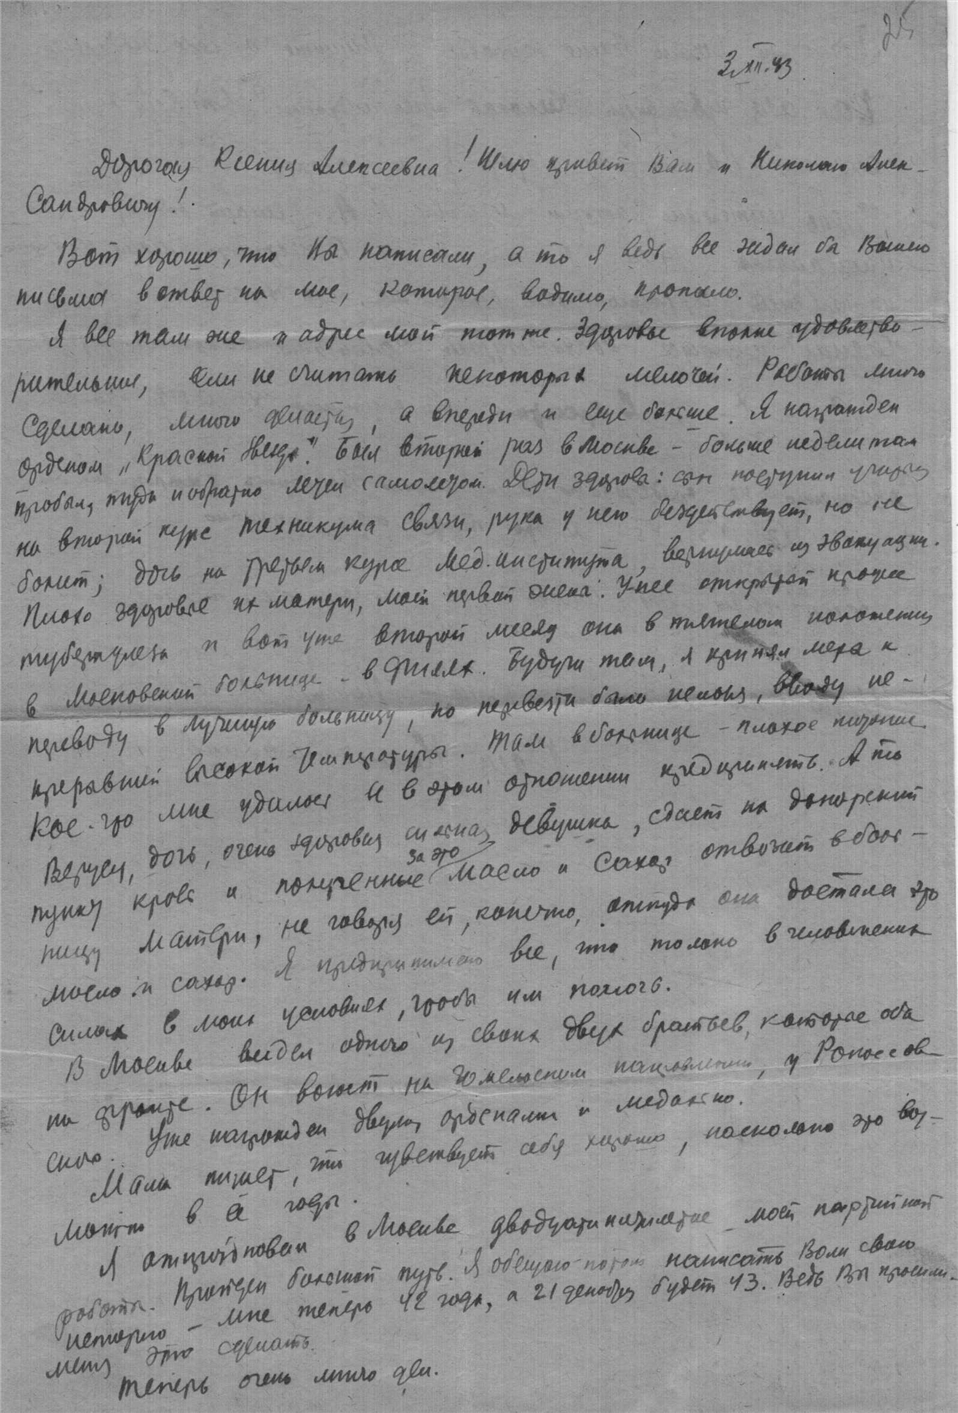 25
3.XII.43
Дорогая Ксения Алексеевна! Шлю привет Вам и Николаю Алек-
сандровичу!
Вот хорошо, что Вы написали, а то я ведь все ждал от Вашего
письма в ответ на мое, которое, видимо, пропало.
Я все там же и адрес мой тот же. Здоровье вполне удовлетво-
рительное, если не считать некоторых мелочей. Работы много
сделано, много делается, а впереди и еще больше. Я награжден
орденом „Красной Звезды". Был второй раз в Москве – больше недели там
пробыл, туда и обратно летел самолетом. Дети здоровы: сын поступил учиться
на второй курс техникума связи, рука у него бездействует, но не
болит; дочь на третьем курсе мед. института, вернулась из эвакуации.
Плохо здоровье их матери, моей первой жены. У нее открытый процесс
туберкулеза и вот уже второй месяц она в тяжелом положении
в Московской больнице – в Филях. Будучи там, я принял меры к
переводу в лучшую больницу, но перевезти было нельзя, ввиду не-
прерывной высокой температуры. Там в больнице – плохое питание.
Кое-что мне удалось и в этом отношении предпринять. А то
Вергусы, дочь, очень здоровая сильная девушка, сдает на донорский
пункт кровь и полученные за это масло и сахар отвозит в боль-
ницу матери, не говоря ей, конечно, откуда она достала это
масло и сахар. Я предпринимаю все, что только в человеческих
силах в моих условиях, чтобы им помочь.
В Москве видел одного из своих двух братьев, которые оба
на фронте. Он воюет на Гомельском направлении, у Рокоссов-
ского. Уже награжден двумя орденами и медалью.
Мама пишет, что чувствует себя хорошо, насколько это воз-
можно в её годы.
Я отпраздновал в Москве двадцатипятилетие моей партийной
работы. Пройден большой путь. Я обещаю потом написать Вам свою
историю – мне теперь 42 года, а 21 декабря будет 43. Ведь Вы просили
меня это сделать.
Теперь очень много дел.